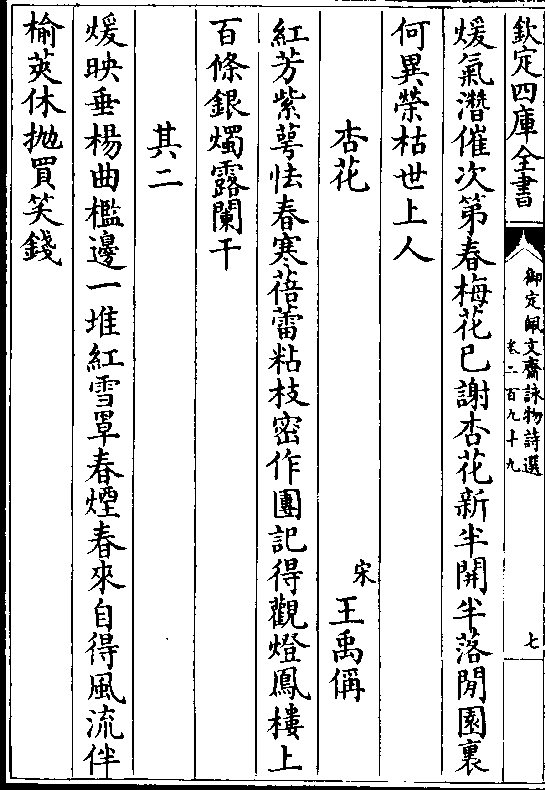 欽定四庫全書
御定佩文齋詠物詩選
卷二百九十九
七
煖氣潛催次第春梅花已謝杏花新半開半落閒園裏
何異榮枯世上人
杏花
宋
王禹偁
紅芳紫萼怯春寒蓓蕾粘枝密作團記得觀燈鳳樓上
百條銀燭露闌干
其二
煖映垂楊曲檻邊一堆紅雪罩春煙春來自得風流伴
榆莢休拋買笑錢